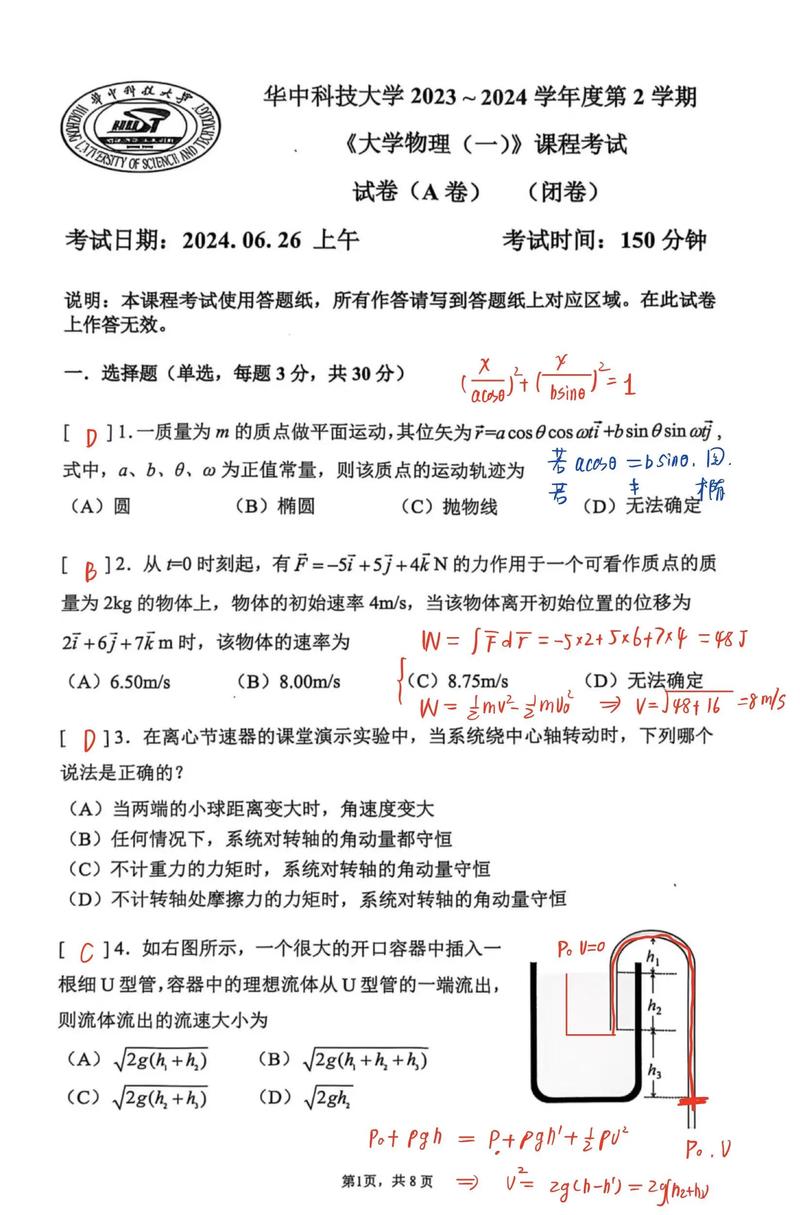 华中科技大学 2023～2024 学年度第 2 学期
《大学物理（一）》课程考试
试卷（A 卷） （闭卷）
考试日期：2024.06.26 上午 考试时间：150 分钟
说明：本课程考试使用答题纸，所有作答请写到答题纸上对应区域。在此试卷
上作答无效。
一．选择题（单选，每题 3 分，共 30 分）
(x/acosθ)²+(y/bsinθ)²=1
[ D ]1.一质量为 m 的质点做平面运动,其位矢为 r⃗=a cosθ cosωt i⃗+b sinθ sinωt j⃗，
式中，a、b、θ、ω 为正值常量，则该质点的运动轨迹为
若 acosθ =bsinθ. 圆.
若 ≠ 椭
（A）圆 （B）椭圆 （C）抛物线 （D）无法确定
[ B ]2．从 t=0 时刻起，有 F⃗=−5i⃗+5j⃗+4k⃗ N 的力作用于一个可看作质点的质
量为 2kg 的物体上，物体的初始速率 4m/s，当该物体离开初始位置的位移为
2i⃗+6j⃗+7k⃗ m 时，该物体的速率为
W = ∫F⃗dr⃗ = -5×2+5×6+7×4 = 48J
（A）6.50m/s （B）8.00m/s （C）8.75m/s （D）无法确定
W = ½mv²-½mv₀² ⇒ v=√48+16 =8m/s
[ D ]3．在离心节速器的课堂演示实验中，当系统绕中心轴转动时，下列哪个
说法是正确的？
（A）当两端的小球距离变大时，角速度变大
（B）任何情况下，系统对转轴的角动量都守恒
（C）不计重力的力矩时，系统对转轴的角动量守恒
（D）不计转轴处摩擦力的力矩时，系统对转轴的角动量守恒
[ C ]4．如右图所示，一个很大的开口容器中插入一
根细 U 型管，容器中的理想流体从 U 型管的一端流出，
则流体流出的流速大小为
（A）√2g(h₁+h₂) （B）√2g(h₁+h₂+h₃)
（C）√2g(h₂+h₃) （D）√2gh₂
P₀ V=0
h₁
h₂
h₃
P₀+ρgh = P₀+ρgh'+½ρv²
P₀.V
第1页，共 8 页
⇒ v²= 2g(h-h') = 2g(h₂+h₃)